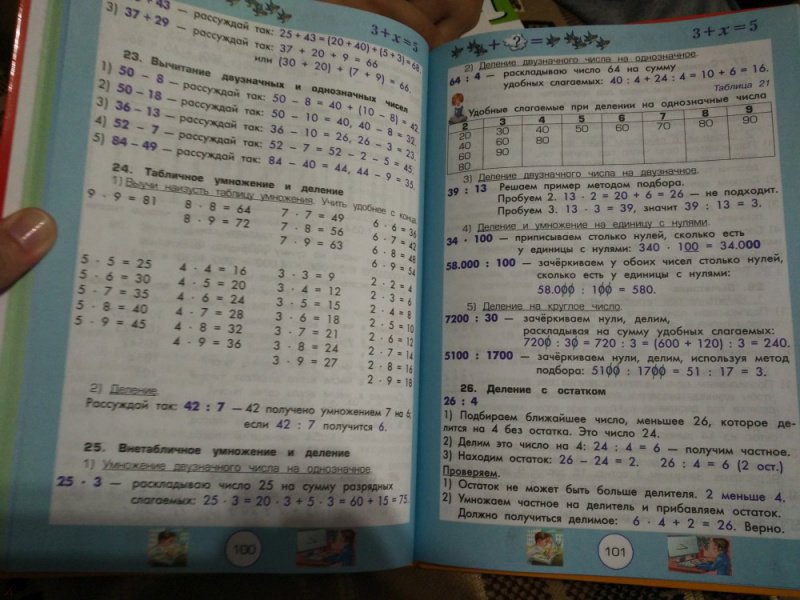 3+x=5
43 — рассуждай так: 25 + 43 = (20 + 40) + (5 + 3) = 68
3) 37 + 29 — рассуждай так: 37 + 20 + 9 = 66
или (30 + 20) + (7 + 9) = 66.
23. Вычитание двузначных и однозначных чисел
1) 50 – 8 — рассуждай так: 50 – 8 = 40 + (10 – 8) = 42
2) 50 – 18 — рассуждай так: 50 – 10 = 40, 40 – 8 = 32.
3) 36 – 13 — рассуждай так: 36 – 10 = 26, 26 – 3 = 23.
4) 52 – 7 — рассуждай так: 52 – 7 = 52 – 2 – 5 = 45.
5) 84 – 49 — рассуждай так: 84 – 40 = 44, 44 – 9 = 35.
24. Табличное умножение и деление
1) Выучи наизусть таблицу умножения. Учить удобнее с конца.
9 · 9 = 81
8 · 8 = 64
8 · 9 = 72
7 · 7 = 49
7 · 8 = 56
7 · 9 = 63
6 · 6 = 36
6 · 7 = 42
6 · 8 = 48
6 · 9 = 54
5 · 5 = 25
5 · 6 = 30
5 · 7 = 35
5 · 8 = 40
5 · 9 = 45
4 · 4 = 16
4 · 5 = 20
4 · 6 = 24
4 · 7 = 28
4 · 8 = 32
4 · 9 = 36
3 · 3 = 9
3 · 4 = 12
3 · 5 = 15
3 · 6 = 18
3 · 7 = 21
3 · 8 = 24
3 · 9 = 27
2 · 2 = 4
2 · 3 = 6
2 · 4 = 8
2 · 5 = 10
2 · 6 = 12
2 · 7 = 14
2 · 8 = 16
2 · 9 = 18
2) Деление.
Рассуждай так: 42 : 7 — 42 получено умножением 7 на 6,
если 42 : 7 получится 6.
25. Внетабличное умножение и деление
1) Умножение двузначного числа на однозначное.
25 · 3 — раскладываю число 25 на сумму разрядных
слагаемых: 25 · 3 = 20 · 3 + 5 · 3 = 60 + 15 = 75.
100
+ ? =
3+x=5
2) Деление двузначного числа на однозначное.
64 : 4 — раскладываю число 64 на сумму
удобных слагаемых: 40 : 4 + 24 : 4 = 10 + 6 = 16.
Таблица 21
Удобные слагаемые при делении на однозначные числа
2 3 4 5 6 7 8 9
20 30 40 50 60 70 80 90
40 60 80
60 90
80
3) Деление двузначного числа на двузначное.
39 : 13 Решаем пример методом подбора.
Пробуем 2. 13 · 2 = 20 + 6 = 26 — не подходит.
Пробуем 3. 13 · 3 = 39, значит 39 : 13 = 3.
4) Деление и умножение на единицу с нулями.
34 · 100 — приписываем столько нулей, сколько есть
у единицы с нулями: 340 · 100 = 34.000
58.000 : 100 — зачёркиваем у обоих чисел столько нулей,
сколько есть у единицы с нулями:
58.000 : 100 = 580.
5) Деление на круглое число.
7200 : 30 — зачёркиваем нули, делим,
раскладывая на сумму удобных слагаемых:
7200 : 30 = 720 : 3 = (600 + 120) : 3 = 240.
5100 : 1700 — зачёркиваем нули, делим, используя метод
подбора: 5100 : 1700 = 51 : 17 = 3.
26. Деление с остатком
26 : 4
1) Подбираем ближайшее число, меньшее 26, которое де-
лится на 4 без остатка. Это число 24.
2) Делим это число на 4: 24 : 4 = 6 — получим частное.
3) Находим остаток: 26 – 24 = 2. 26 : 4 = 6 (2 ост.)
Проверяем.
1) Остаток не может быть больше делителя. 2 меньше 4.
2) Умножаем частное на делитель и прибавляем остаток.
Должно получиться делимое: 6 · 4 + 2 = 26. Верно.
101